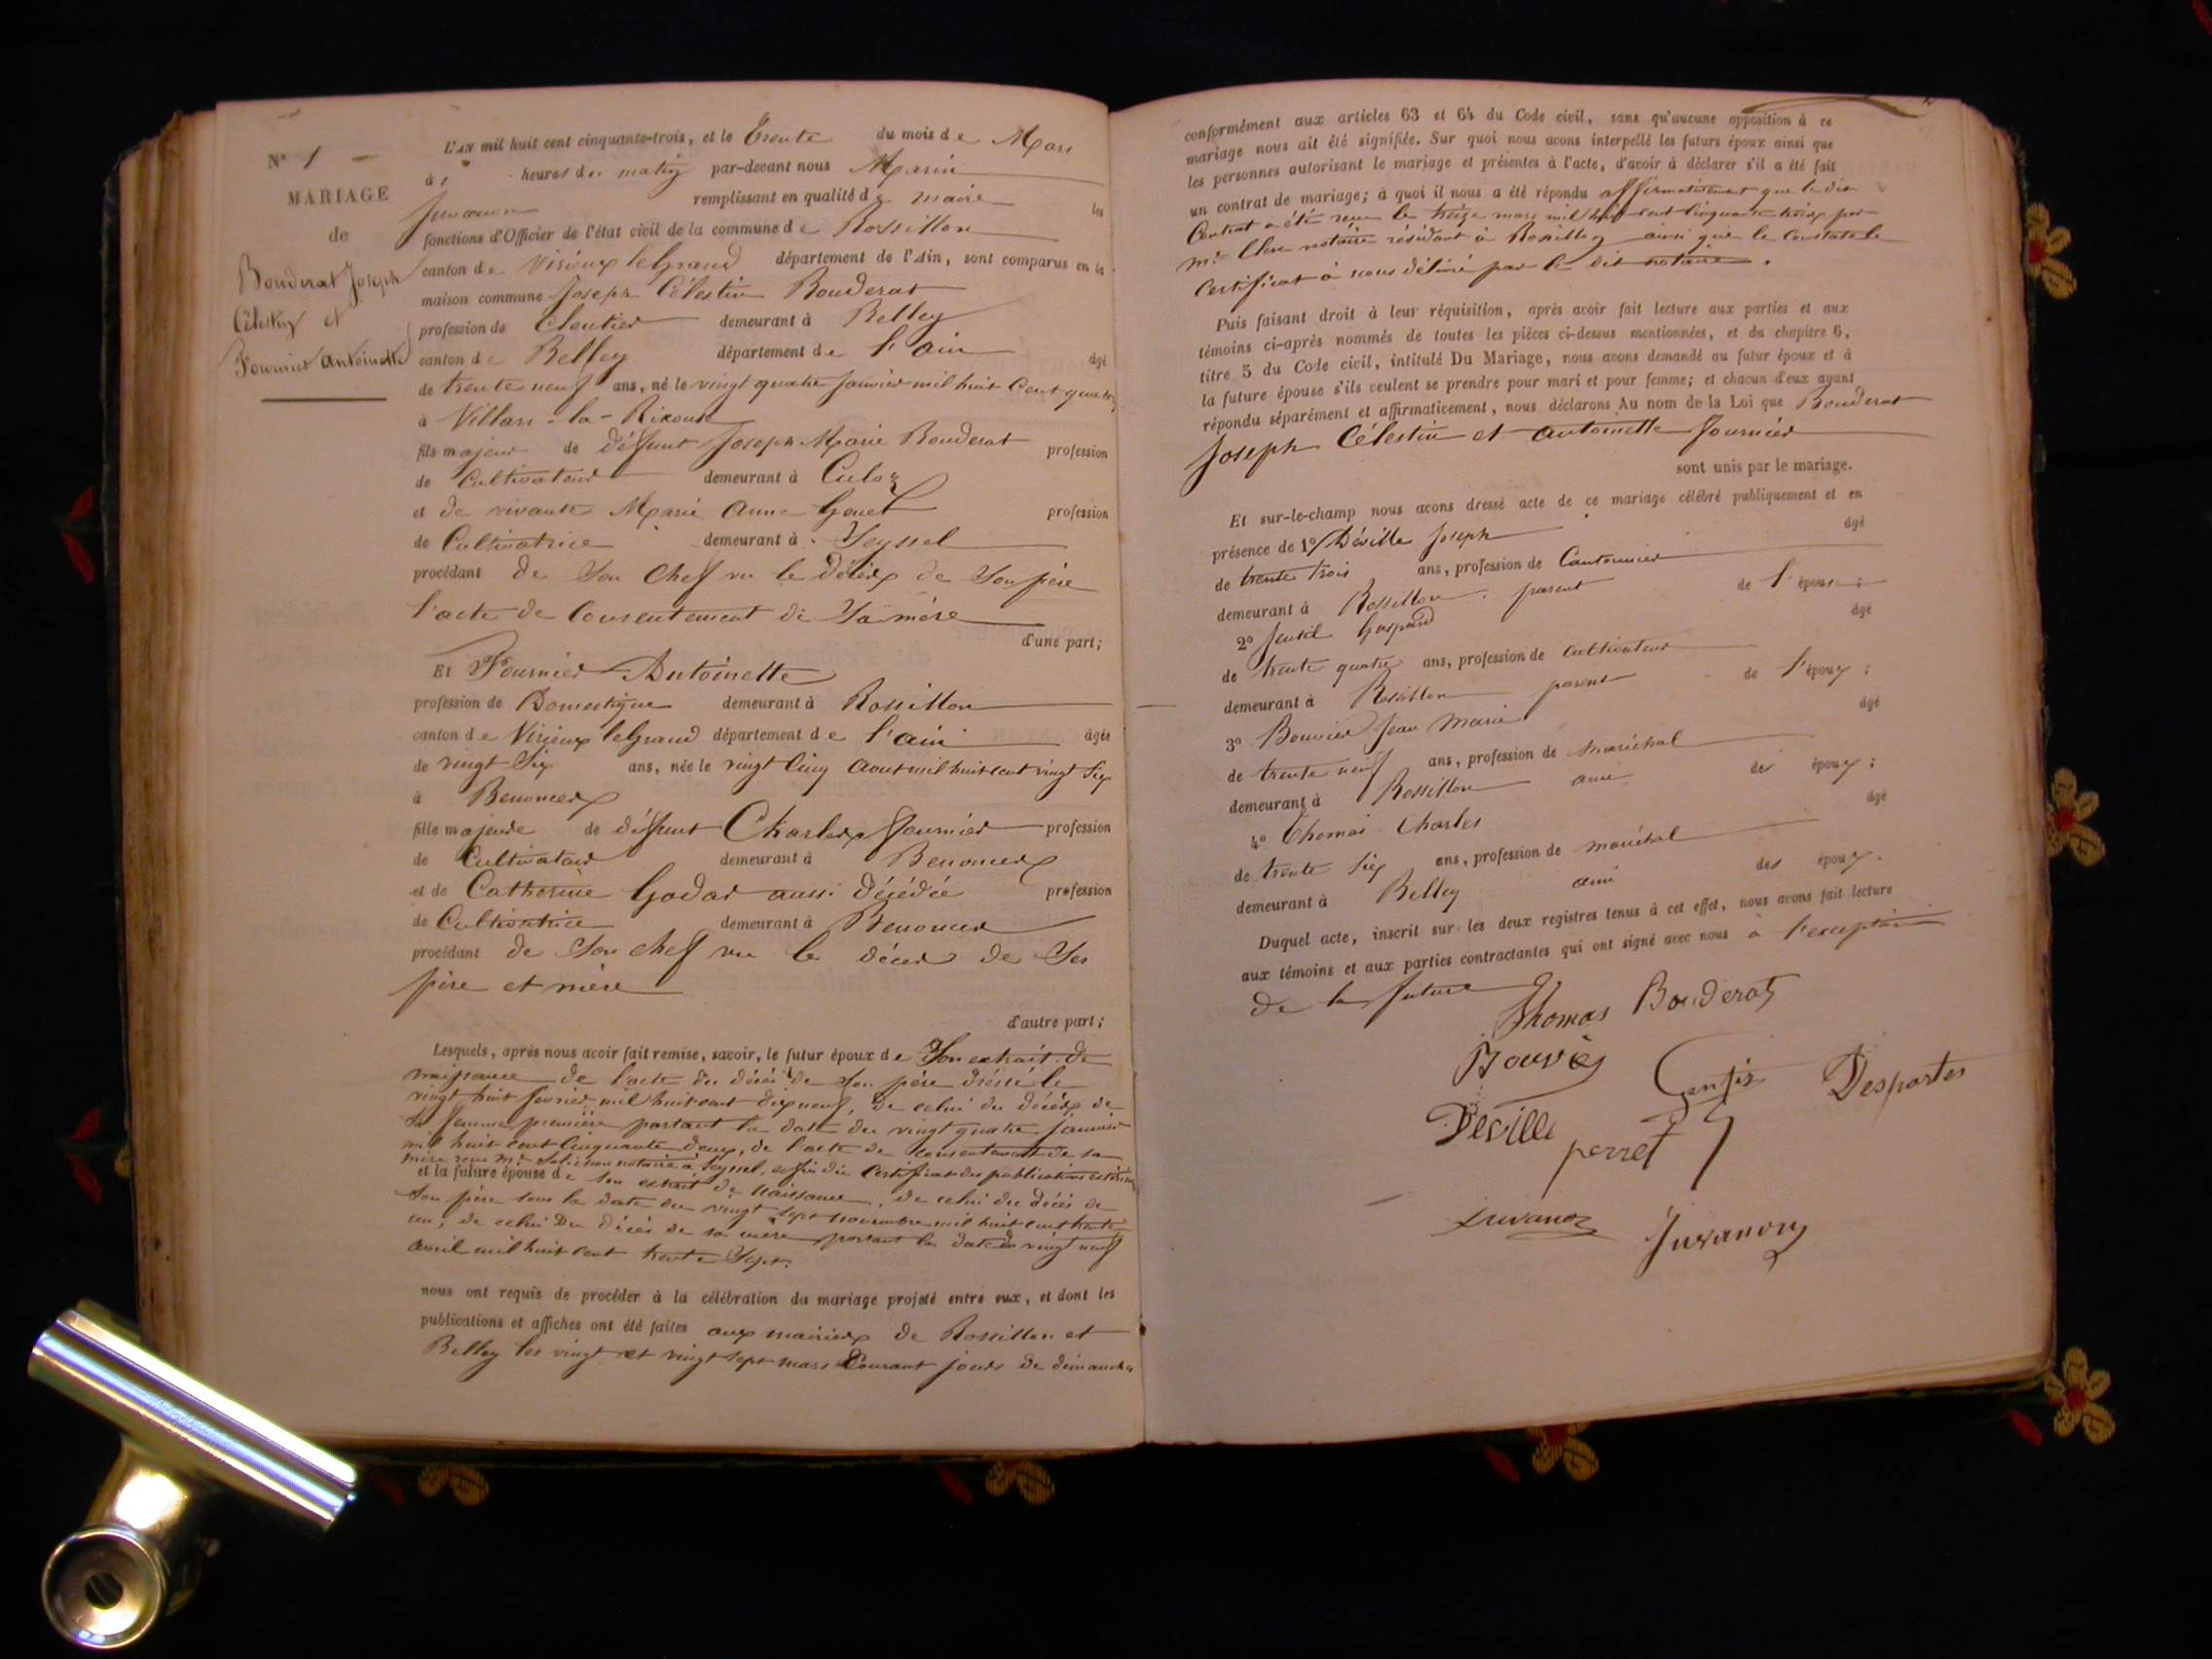 N° 1
MARIAGE
de
Bouderat Joseph
Célestin et
Fournier Antoinette
L'AN mil huit cent cinquante-trois, et le Trente du mois de Mars
à heures du matin par-devant nous Marin
Juvanon remplissant en qualité de maire les
fonctions d'Officier de l'état civil de la commune de Rossillon
canton de Virieux le Grand département de l'Ain, sont comparus en la
maison commune Joseph Célestin Bouderat
profession de Cloutier demeurant à Belley
canton de Belley département de l'ain âgé
de trente neuf ans, né le vingt quatre janvier mil huit Cent quatorze
à Villars-la-Rixouse
fils majeur de défunt Joseph Marie Bouderat profession
de Cultivateur demeurant à Culoz
et de vivante Marie Anne Gonet profession
de Cultivatrice demeurant à Seyssel
procédant de Son Chef vu le décès de Son père
l'acte de Consentement de Sa mère
d'une part;
Et Fournier Antoinette
profession de Domestique demeurant à Rossillon
canton de Virieux le Grand département de l'ain âgée
de vingt Six ans, née le vingt Cinq Aout mil huit cent vingt Six
à Benonces
fille majeure de défunt Charles Fournier profession
de Cultivateur demeurant à Benonces
et de Catherine Godar aussi décédée profession
de Cultivatrice demeurant à Benonces
procédant de Son chef vu le décès de Ses
père et mère
d'autre part;
Lesquels, après nous avoir fait remise, savoir, le futur époux de Son extrait de
naissance de l'acte du décès de Son père dressé le
vingt huit fevrier mil huit cent dix neuf, de celui du décès de
Sa femme première portant la date du vingt quatre janvier
mil huit cent Cinquante deux, de l'acte de Consentement de sa
mère reçu Me notaire à Seyssel, enfin du Certificat des publications
et la future épouse de Son extrait de Naissance, de celui du décès de
Son père sous la date du vingt Sept novembre mil huit cent trente
un, de celui Du décès de sa mère portant la date du vingt neuf
avril mil huit cent trente Sept.
nous ont requis de procéder à la célébration du mariage projeté entre eux, et dont les
publications et affiches ont été faites aux mairies de Rossillon et
Belley les vingt et vingt sept mars Courant jours de dimanche
conformément aux articles 63 et 64 du Code civil, sans qu'aucune opposition à ce
mariage nous ait été signifiée. Sur quoi nous avons interpellé les futurs époux ainsi que
les personnes autorisant le mariage et présentes à l'acte, d'avoir à déclarer s'il a été fait
un contrat de mariage; à quoi il nous a été répondu affirmativement que le dit
Contrat a été reçu le treize mars mil huit cent Cinquante trois par
Me notaire résidant à Rossillon ainsi que le Constate le
Certificat à nous délivré par le dit notaire.
Puis faisant droit à leur réquisition, après avoir fait lecture aux parties et aux
témoins ci-après nommés de toutes les pièces ci-dessus mentionnées, et du chapitre 6,
titre 5 du Code civil, intitulé Du Mariage, nous avons demandé au futur époux et à
la future épouse s'ils veulent se prendre pour mari et pour femme; et chacun d'eux ayant
répondu séparément et affirmativement, nous déclarons Au nom de la Loi que Bouderat
Joseph Célestin et Antoinette Fournier
sont unis par le mariage.
Et sur-le-champ nous avons dressé acte de ce mariage célébré publiquement et en
présence de 1° Déville Joseph âgé
de trente trois ans, profession de Cantonnier
demeurant à Rossillon parent de l'épouse;
2° Gaspard âgé
de trente quatre ans, profession de Cultivateur
demeurant à Rossillon parent de l'époux;
3° Bouvier Jean Marie âgé
de trente neuf ans, profession de Maréchal
demeurant à Rossillon ami des époux;
4° Thomas Charles âgé
de trente Six ans, profession de maréchal
demeurant à Belley ami des époux.
Duquel acte, inscrit sur les deux registres tenus à cet effet, nous avons fait lecture
aux témoins et aux parties contractantes qui ont signé avec nous à l'exception
de la future
Thomas Bouderat
Desportes
Déville perret
Juvanon
Juvanon